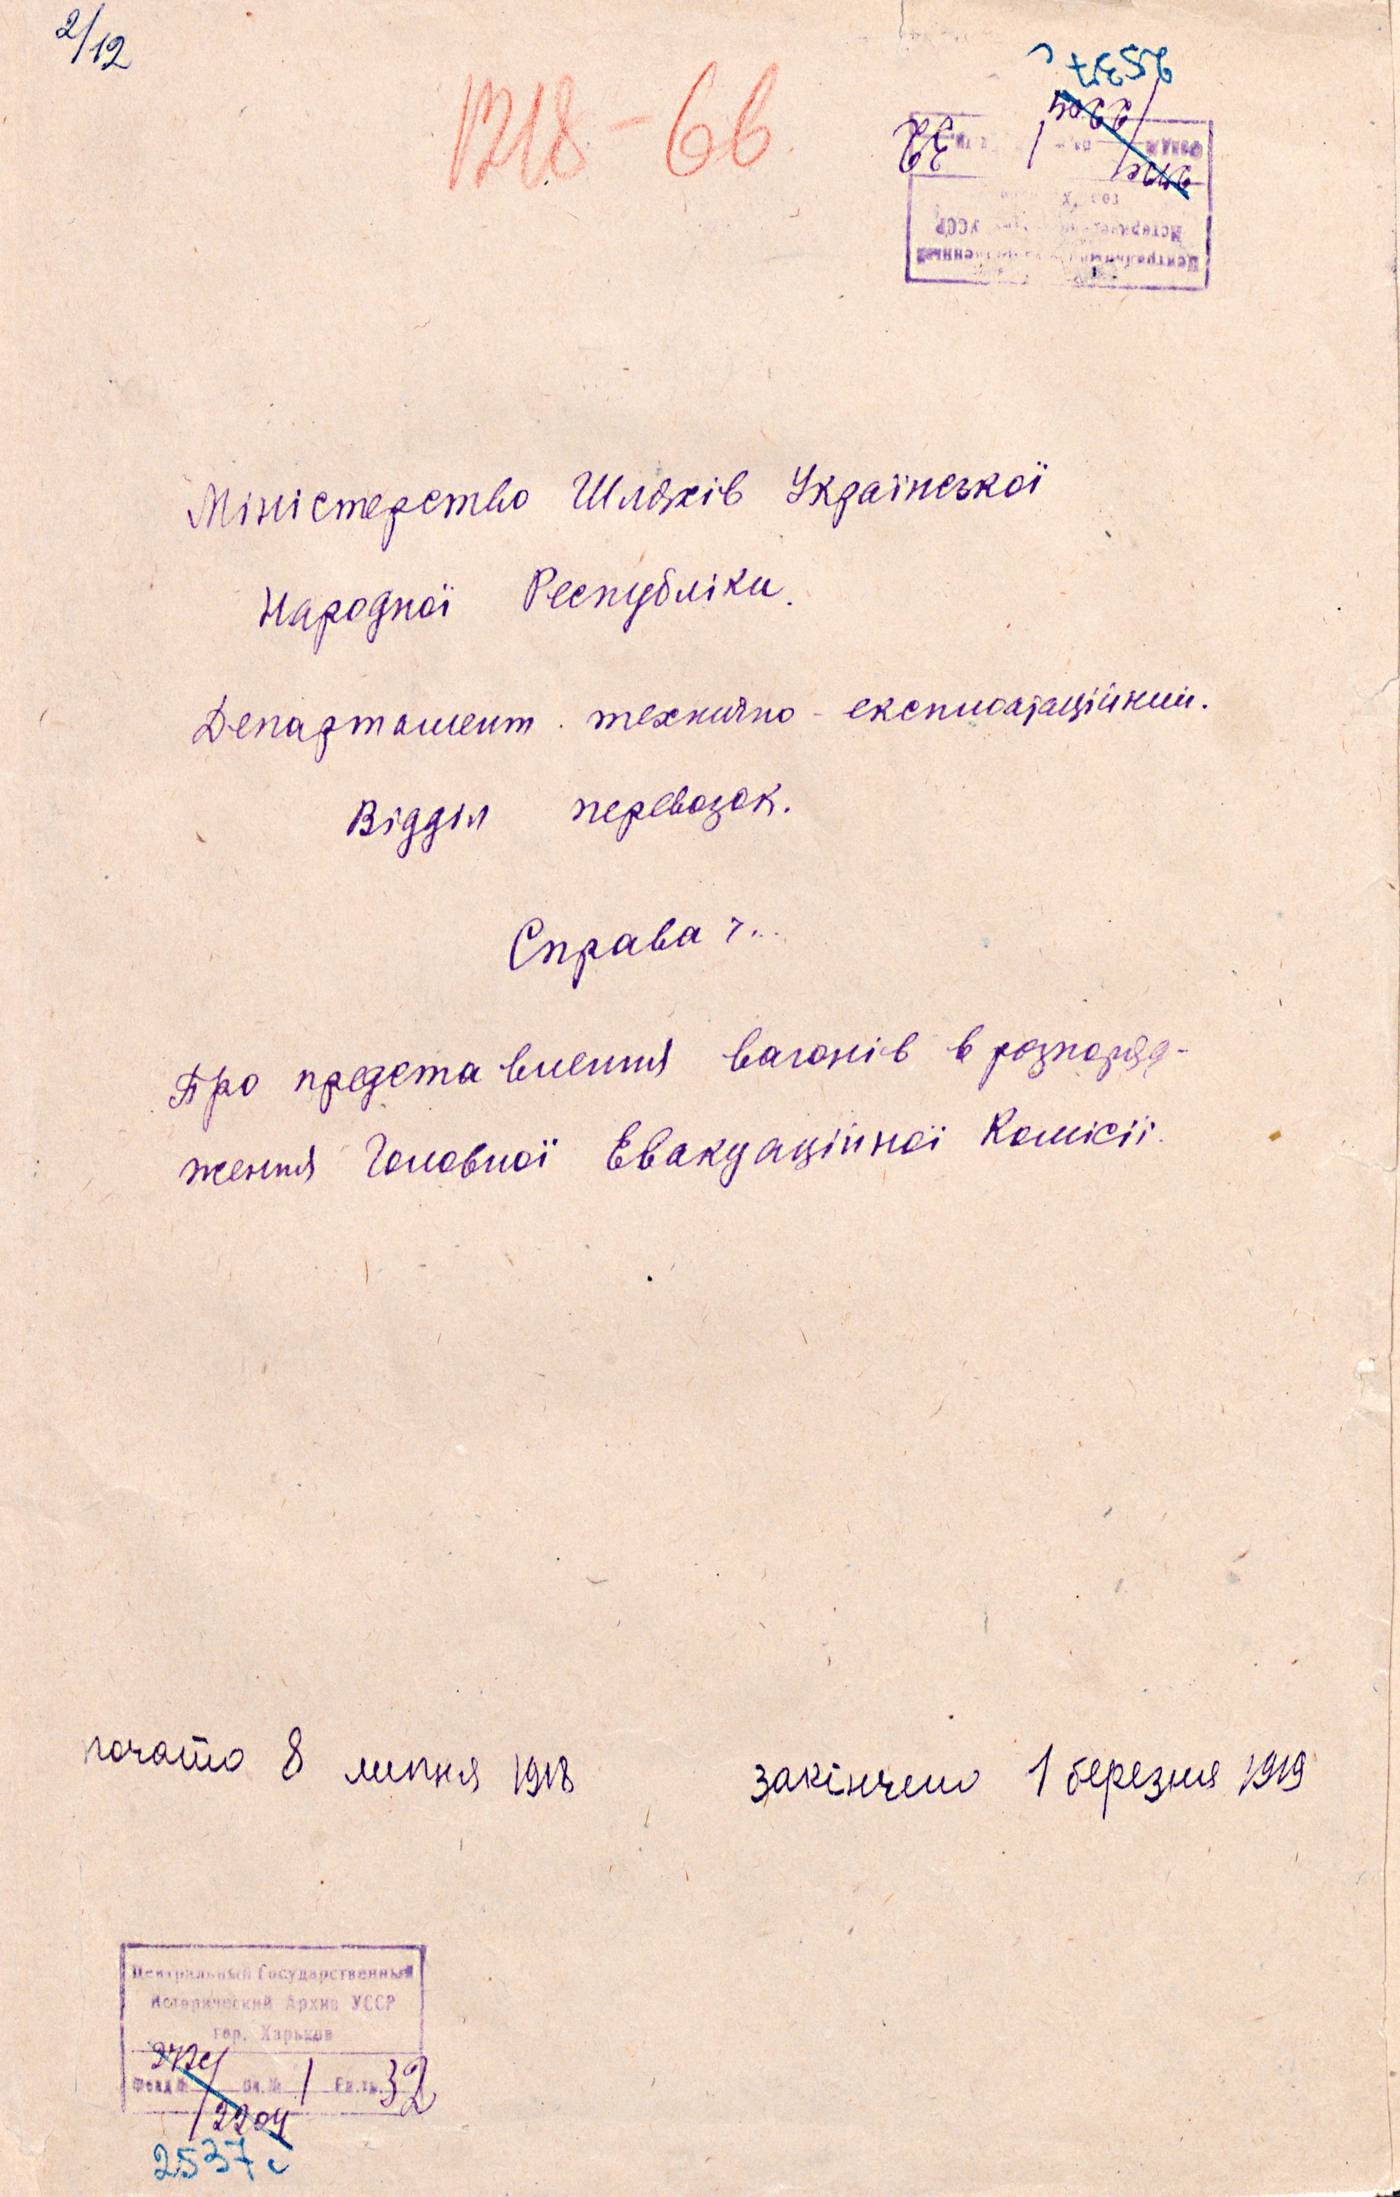 2/12
1218-6в.
2537с
2204
32
Міністерство Шляхів Української
Народної Республіки.
Департамент технично-експлоатаційний.
Відділ перевозок.
Справа ч...
Про представлення вагонів в розпоряд-
ження Головної Евакуаційної Комісії.
почато 8 липня 1918 закінчено 1 березня 1919
Центральный Государственный
Исторический Архив УССР
гор. Харьков
Фонд № Оп.№ 1 Ед.хр. 32
2204
2537с